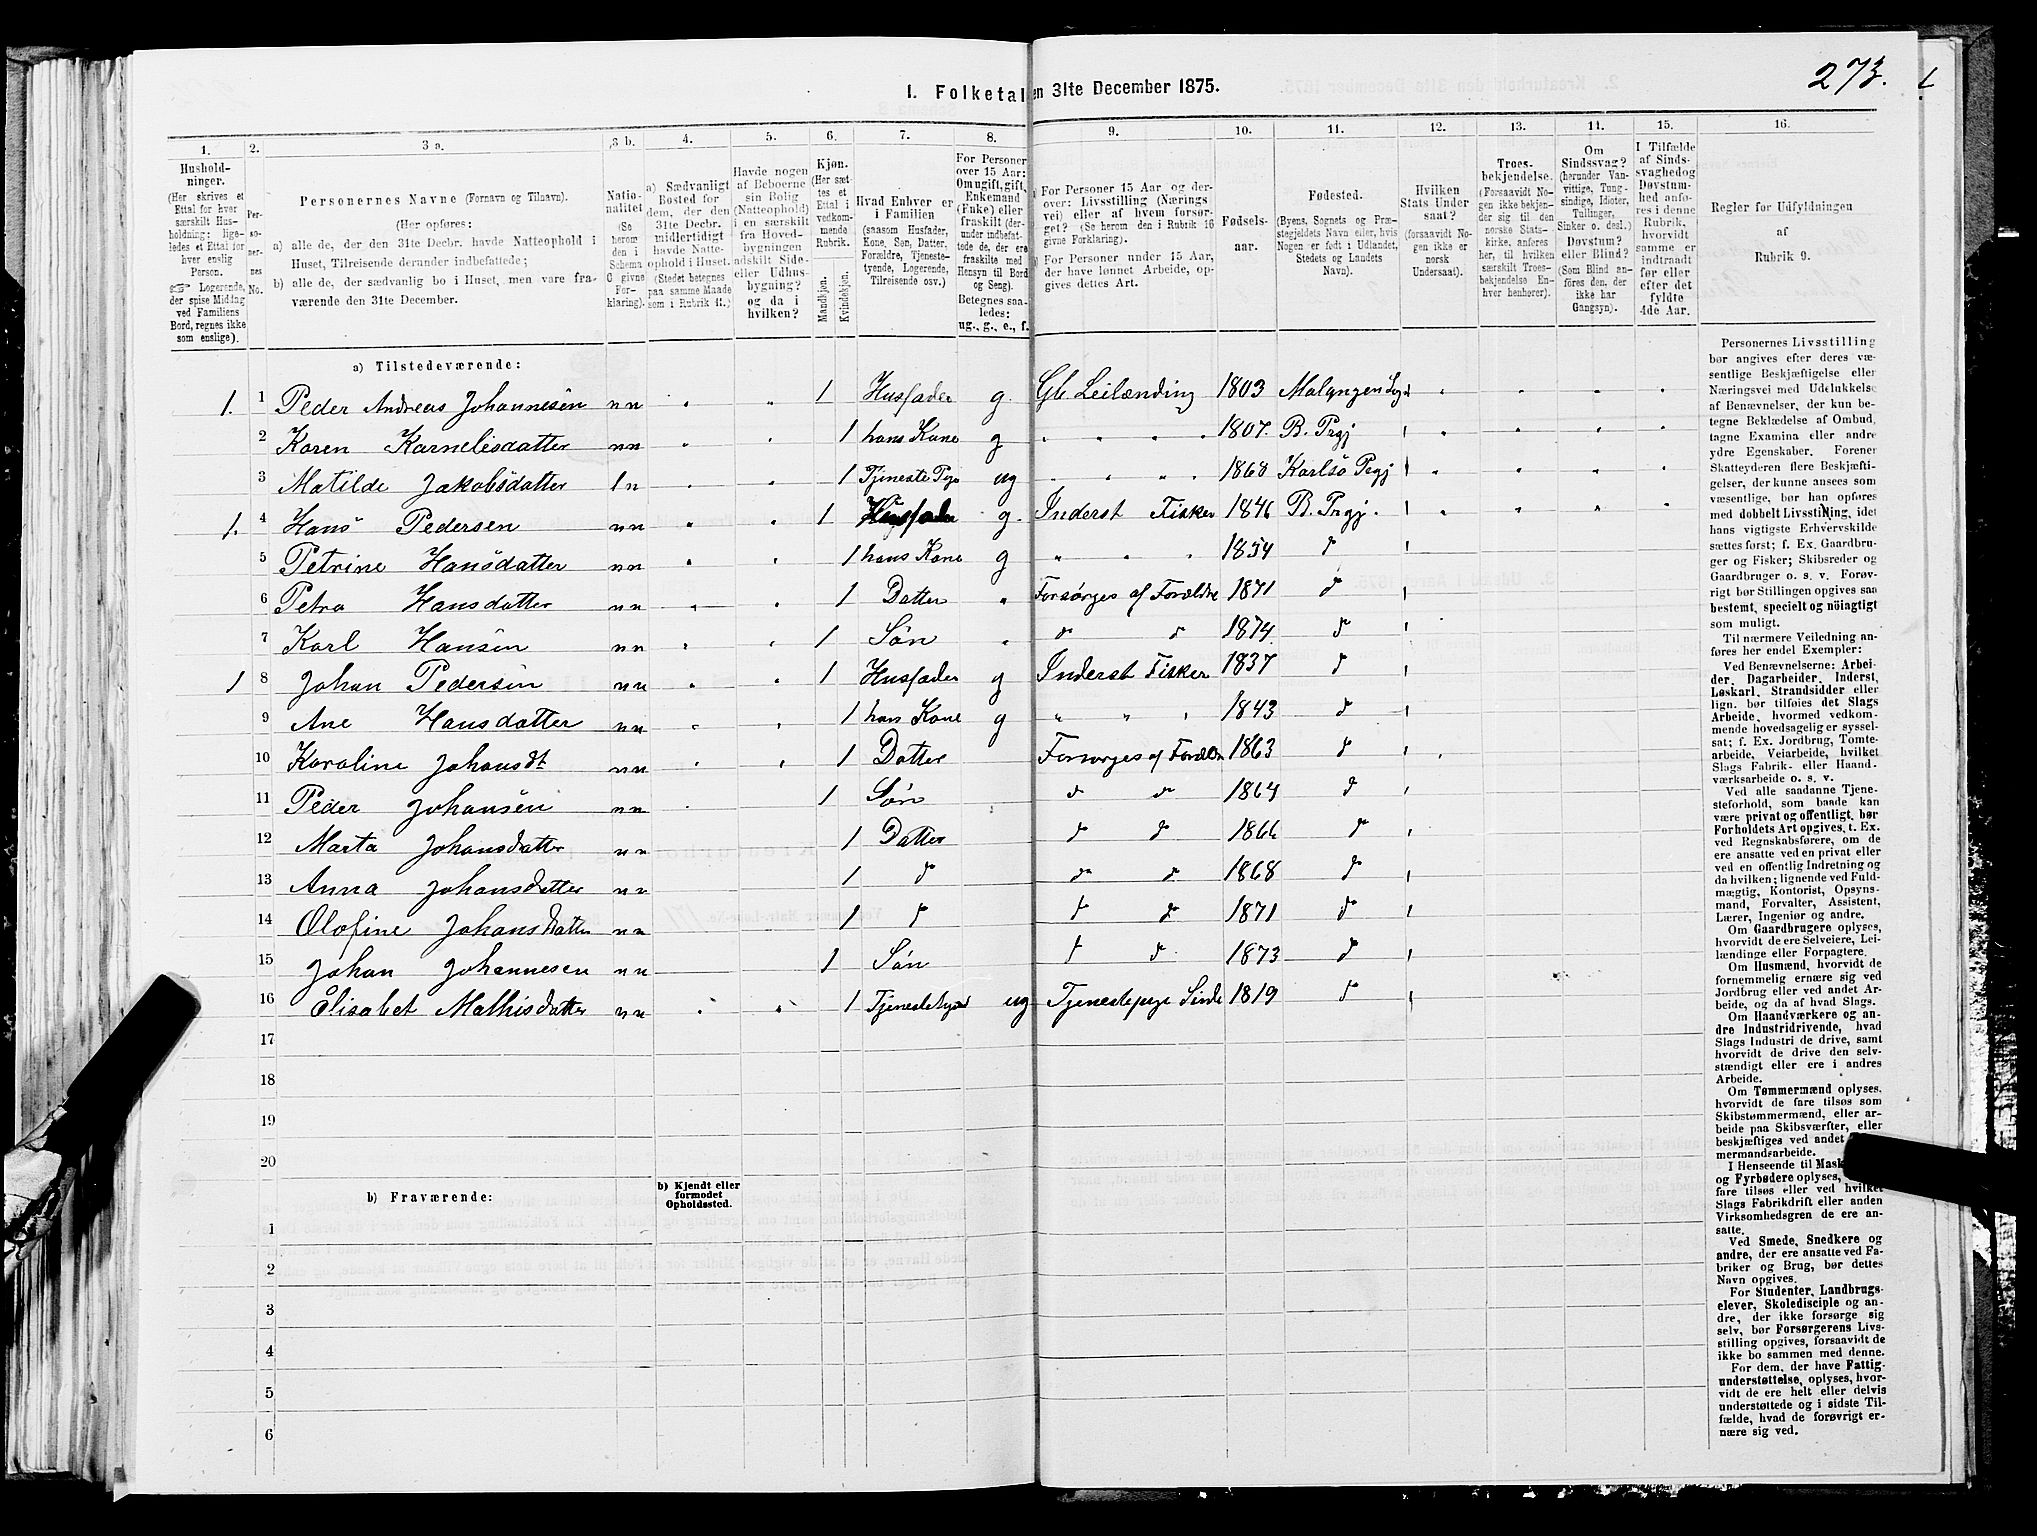 273.
1. Folketal
en 31te December 1875.
1. 2. 3 a. 3 b. 4. 5. 6. 7. 8. 9. 10. 11. 12. 13. 11. 15. 16.
Hushold-
ninger.
(Her skrives et
Ettal for hver
særskilt Hus-
holdning; lige-
ledes et Ettal for
hver enslig
Person.
Logerende,
der spise Middag
ved Familiens
Bord, regnes ikke
som enslige).
Per-
so-
ner-
nes
No.
Personernes Navne (Fornavn og Tilnavn).
(Her opføres:
a) alle de, der den 31te Decbr. havde Natteophold i
Huset, Tilreisende derunder indbefattede;
b) alle de, der sædvanlig bo i Huset, men vare fra-
værende den 31te December.
Natio-
nalitet
(Se
herom
den i
Schema
G givne
For-
klaring).
a) Sædvanligt
Bosted for
dem, der den
31te Decbr.
midlertidigt
havde Natte-
ophold i Huset.
(Stedet betegnes
paa samme Maade
som i Rubrik 11.)
Havde nogen
af Beboerne
sin Bolig
(Natteophold)
i en særskilt
fra Hoved-
bygningen
adskilt Side-
eller Udhus-
bygning?
og da i
hvilken?
Kjøn.
(Her sæt-
tes et
Ettal i
vedkom-
mende
Rubrik.
Mandkjøn.
Kvindekjøn.
Hvad Enhver er
i Familien
(saasom Husfader,
Kone, Søn, Datter,
Forældre, Tjeneste-
tyende, Logerende,
Tilreisende osv.)
For Personer
over 15 Aar:
Om ugift, gift,
Enkemand
(Enke) eller
fraskilt (der-
under indbefat-
tede de, der ere
fraskilte med
Hensyn til Bord
og Seng).
Betegnes saa-
ledes:
ug., g., e., f.
For Personer 15 Aar og der-
over: Livsstilling (Nærings
vei) eller af hvem forsør-
get? (Se herom den i Rubrik 16
givne Forklaring).
For Personer under 15 Aar,
der have lønnet Arbeide, op-
gives dettes Art.
Fødsels-
aar.
Fødested.
(Byens, Sognets og Præ-
stegjeldets Navn eller, hvis
Nogen er født i Udlandet,
Stedets og Landets
Navn).
Hvilken
Stats Under
saat?
(forsaavidt No-
gen ikke er
norsk
Undersaat).
Troes-
bekjendelse.
(Forsaavidt No-
gen ikke bekjen-
der sig til den
norske Stats-
kirke, anføres
her, til hvilken
særskilt Troes-
bekjendelse En-
hver henhører).
Om
Sindssvag?
(herunder Van-
vittige, Tung-
sindige, Idioter,
Tullinger,
Sinker o. desl.)
Døvstum?
eller Blind?
(Som Blind an-
føres den, der
ikke har
Gangsyn).
I Tilfælde
af Sinds-
svaghed og
Døvstum-
hed anfø-
res i denne
Rubrik,
hvorvidt
samme er
indtraadt
før eller
efter det
fyldte
4de Aar.
Regler for Udfyldningen
af
Rubrik 9.
a) Tilstedeværende:
1. 1 Peder Andreas Johannesen nn 1 Husfader g. Gb Leilænding 1803 Malangen
2 Karen Karnelisdatter nn 1 hans Kone g 1807. B. Prgj
3 Matilde Jakobsdatter ln 1 Tjeneste Pige ug 1868 Karlsö Prgj
1. 4 Hans Pedersen nn 1 Husfader g. Inderst Fisker 1846 B. Prgj.
5 Petrine Hansdatter nn 1 hans Kone g 1854 d
6 Petra Hansdatter nn 1 Datter Forsørges af Forældre 1871 d
7 Karl Hansen nn 1 Søn d d 1874. d
1 8 Johan Pedersen nn 1 Husfader g Inderst Fisker 1837 d
9 Ane Hansdatter nn 1 hans Kone g 1843 d
10 Karoline Johansdt nn 1 Datter Forsørges af Forældre 1863 d
11 Peder Johansen nn 1 Søn d d 1864 d
12 Marta Johansdatter nn 1 Datter d d 1866 d
13 Anna Johansdatter nn 1 d d d 1868 d
14 Olofine Johansdatter nn 1 d d d 1871 d
15 Johan Johannesen nn 1 Søn d d 1873 d
16 Elisabet Mathisdatter nn 1 ug Tjenestepige 1819 d
17
18
19
20
b) Fraværende:
b) Kjendt eller
formodet
Opholdssted.
1
2
3
4
5
6
Personernes Livsstilling
bør angives efter deres væ-
sentlige Beskjæftigelse eller
Næringsvei med Udelukkelse
af Benævnelser, der kun be-
tegne Beklædelse af Ombud,
tagne Examina eller andre
ydre Egenskaber. Forener
Skatteyderen flere Beskjæfti-
gelser, der kunne ansees som
væsentlige, bør han opføres
med dobbelt Livsstilling, idet
hans vigtigste Erhvervskilde
sættes først; f. Ex. Gaardbru-
ger og Fisker; Skibsreder og
Gaardbruger o. s. v. Forøv-
rigt bør Stillingen opgives saa
bestemt, specielt og nöiagtigt
som muligt.
Til nærmere Veiledning an-
føres her endel Exempler:
Ved Benævnelserne: Arbei-
der, Dagarbeider, Inderst,
Løskarl, Strandsidder eller
lign. bør tilføies det Slags
Arbeide, hvormed vedkom-
mende hovedsagelig er syssel-
sat; f. Ex. Jordbrug, Tomte-
arbeide, Veiarbeide, hvilket
Slags Fabrik- eller Haand-
værksarbeide o. s. v.
Ved alle saadanne Tjene-
steforhold, som baade kan
være privat og offentligt, bør
Forholdets Art opgives, t. Ex.
ved Regnskabsførere, om de
ere ansatte ved en privat eller
ved en offentlig Indretning og
da hvilken; lignende ved Fuld-
mægtig, Kontorist, Opsyns-
mand, Forvalter, Assistent,
Lærer, Ingeniør og andre.
Om Gaardbrugere oplyses,
hvorvidt de ere Selveiere, Lei-
lændinge eller Forpagtere.
Om Husmænd, hvorvidt de
fornemmelig ernære sig ved
Jordbrug eller ved andet Ar-
beide, og da af hvad Slags.
Om Haandværkere og an-
dre Industridrivende, hvad
Slags Industri de drive, samt
hvorvidt de drive den selv-
stændigt eller ere i andres
Arbeide.
Om Tømmermænd oplyses,
hvorvidt de fare tilsøs som
Skibstømmermænd, eller ar-
beide paa Skibsværfter, eller
beskjæftiges ved andet
mermandsarbeide.
I Henseende til
og Fyrbødere oplyses,
fare tilsøs eller ved hvilket
Slags Fabrikdrift eller anden
Virksomhedsgren de ere an-
satte.
Ved Smede, Snedkere og
andre, der ere ansatte ved Fa-
briker og Brug, bør dettes
Navn opgives.
For Studenter, Landbrugs-
elever, Skoledisciple og an-
dre, der ikke forsørge sig
selv, bør Forsørgerens Livs-
stilling opgives, forsaavidt de
ikke bo sammen med denne.
For dem, der have Fattig-
understøttelse, oplyses, hvor-
vidt de ere helt eller delvis
understøttede og i sidste Til-
fælde, hvad de forøvrigt er-
nære sig ved.